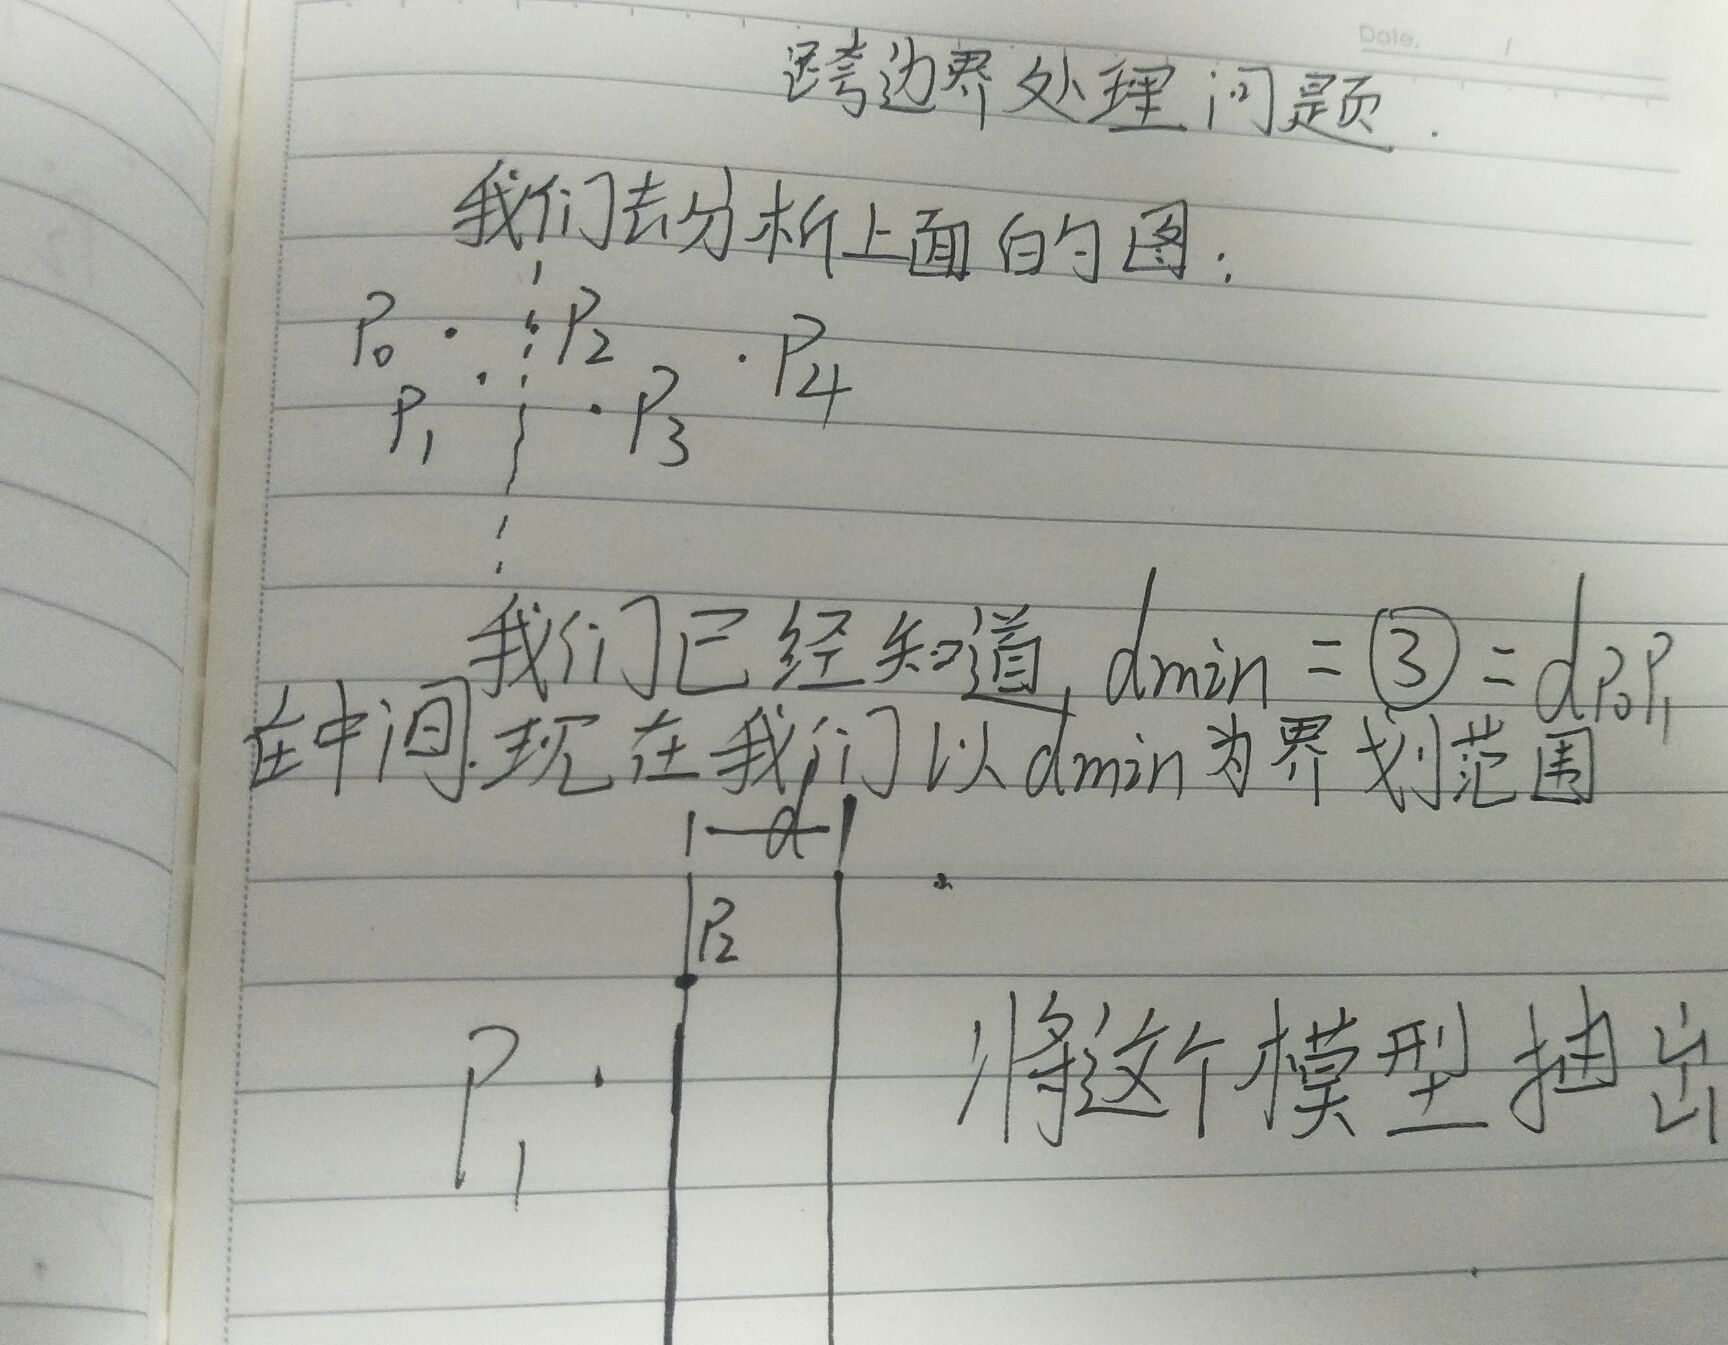 Date. /
跨边界处理问题.
我们去分析上面的图:
P₀ · P₂ · P₄
P₁ · P₃
我们已经知道, dmin = ③ = dP₀P₁
在中间.现在我们以dmin为界划范围
d
P₂
P₁ · 将这个模型抽出